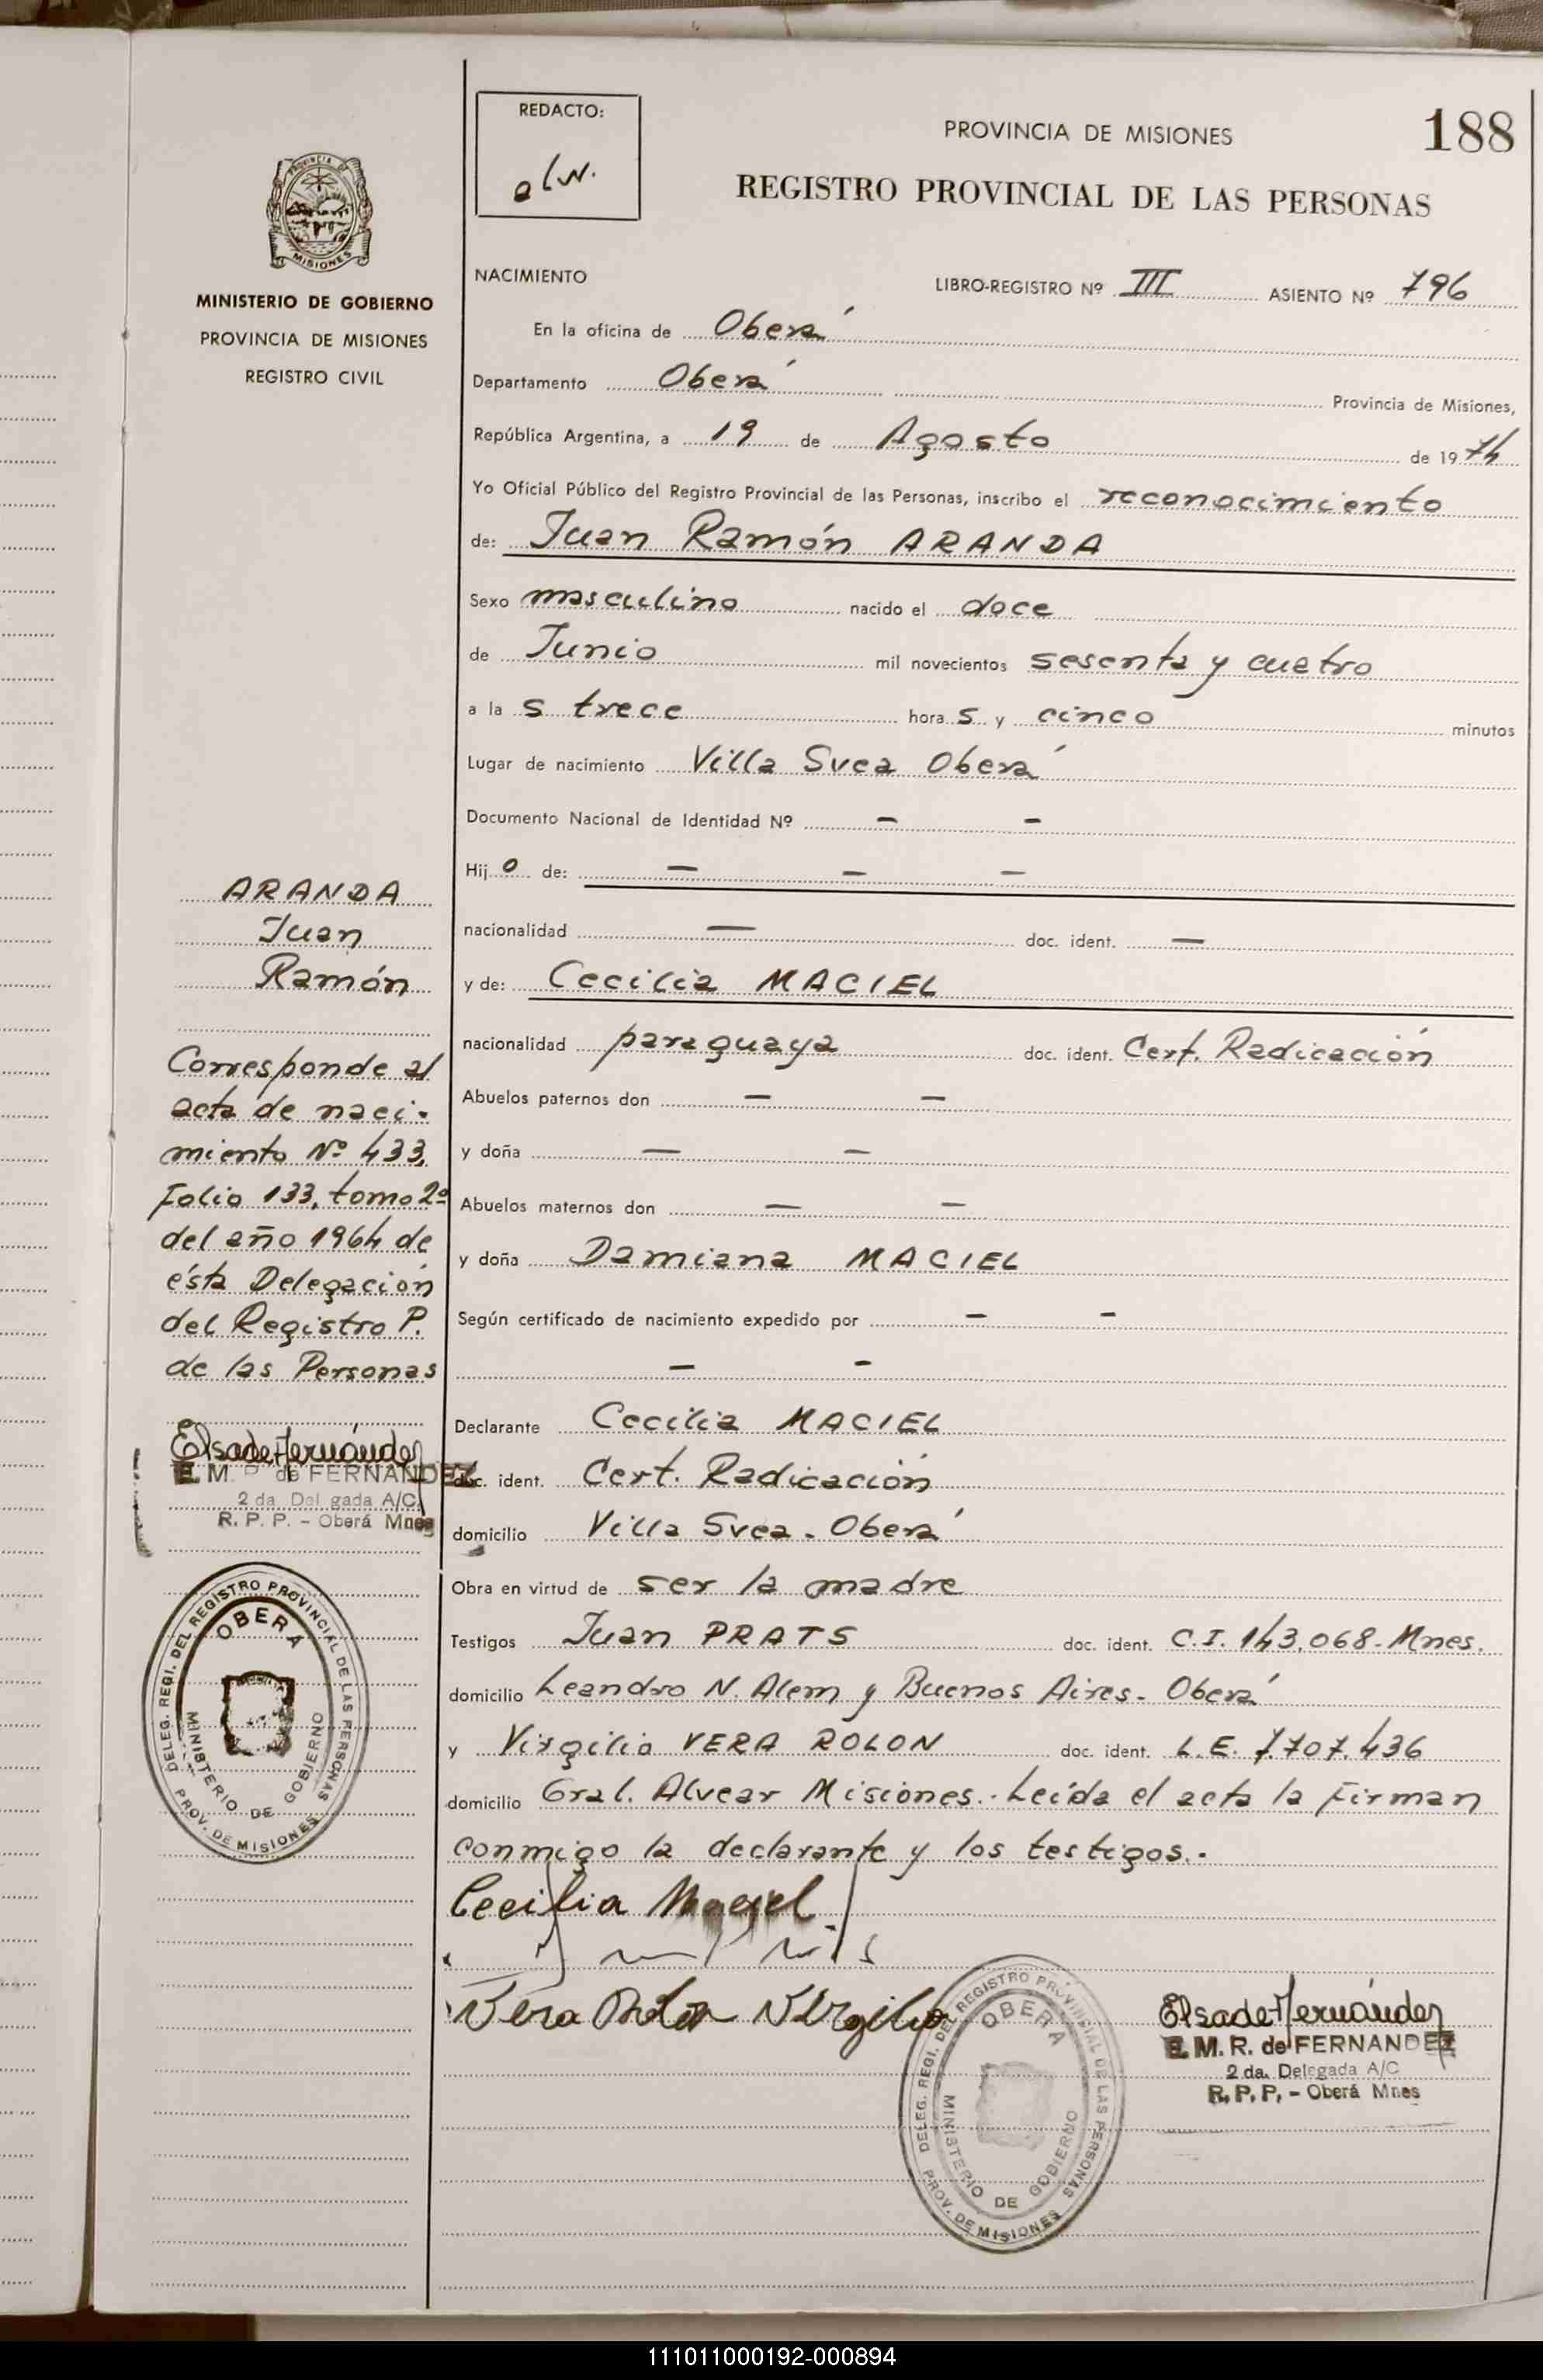 188
REDACTO:
PROVINCIA DE MISIONES
REGISTRO PROVINCIAL DE LAS PERSONAS
PROVINCIA DE
MISIONES
MINISTERIO DE GOBIERNO
PROVINCIA DE MISIONES
REGISTRO CIVIL
NACIMIENTO LIBRO-REGISTRO Nº III ASIENTO Nº 796
En la oficina de Oberá
Departamento Oberá Provincia de Misiones,
República Argentina, a 19 de Agosto de 1974
Yo Oficial Público del Registro Provincial de las Personas, inscribo el reconocimiento
de: Juan Ramón ARANDA
Sexo masculino nacido el doce
de Junio mil novecientos sesenta y cuatro
a la s trece hora s y cinco minutos
Lugar de nacimiento Villa Svea Oberá
Documento Nacional de Identidad Nº — —
Hij o de: — — —
nacionalidad — doc. ident. —
y de: Cecilia MACIEL
nacionalidad paraguaya doc. ident. Cert. Radicación
Abuelos paternos don — —
y doña — —
Abuelos maternos don — —
y doña Damiana MACIEL
Según certificado de nacimiento expedido por — —
— —
Declarante Cecilia MACIEL
doc. ident. Cert. Radicación
domicilio Villa Svea - Oberá
Obra en virtud de ser la madre
Testigos Juan PRATS doc. ident. C.I. 143.068 - Mnes.
domicilio Leandro N. Alem y Buenos Aires - Oberá
y Virgilio VERA ROLON doc. ident. L.E. 7.707.436
domicilio Gral. Alvear Misiones.- Leída el acta la firman
conmigo la declarante y los testigos.-
Cecilia Maciel
Vera Rolon Virgilio
ARANDA
Juan
Ramón
Corresponde al
acta de naci-
miento Nº 433,
folio 133, tomo 2º
del año 1964 de
ésta Delegación
del Registro P.
de las Personas
Elsa de Fernández
E. M. R. de FERNANDEZ
2 da. Delegada A/C
R. P. P. - Oberá Mnes
DELEG. REGI. DEL REGISTRO PROVINCIAL DE LAS PERSONAS
OBERA
MINISTERIO DE GOBIERNO
PROV. DE MISIONES
DELEG. REGI. DEL REGISTRO PROVINCIAL DE LAS PERSONAS
OBERA
MINISTERIO DE GOBIERNO
PROV. DE MISIONES
Elsa de Fernández
E. M. R. de FERNANDEZ
2 da. Delegada A/C
R. P. P. - Oberá Mnes
111011000192-000894